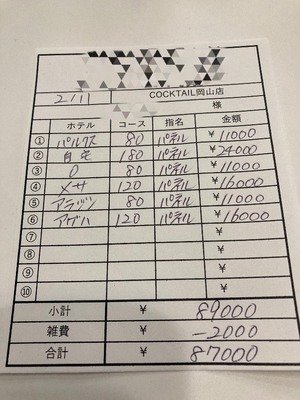 2/11
COCKTAIL岡山店
様
ホテル コース 指名 金額
① パルクス 80 パネル ¥11000
② 自宅 180 パネル ¥24000
③ O 80 パネル ¥11000
④ メサ 120 パネル ¥16000
⑤ アラジン 80 パネル ¥11000
⑥ アゲハ 120 パネル ¥16000
⑦ ¥
⑧ ¥
⑨ ¥
⑩ ¥
小計 ¥ 89000
雑費 ¥ -2000
合計 ¥ 87000